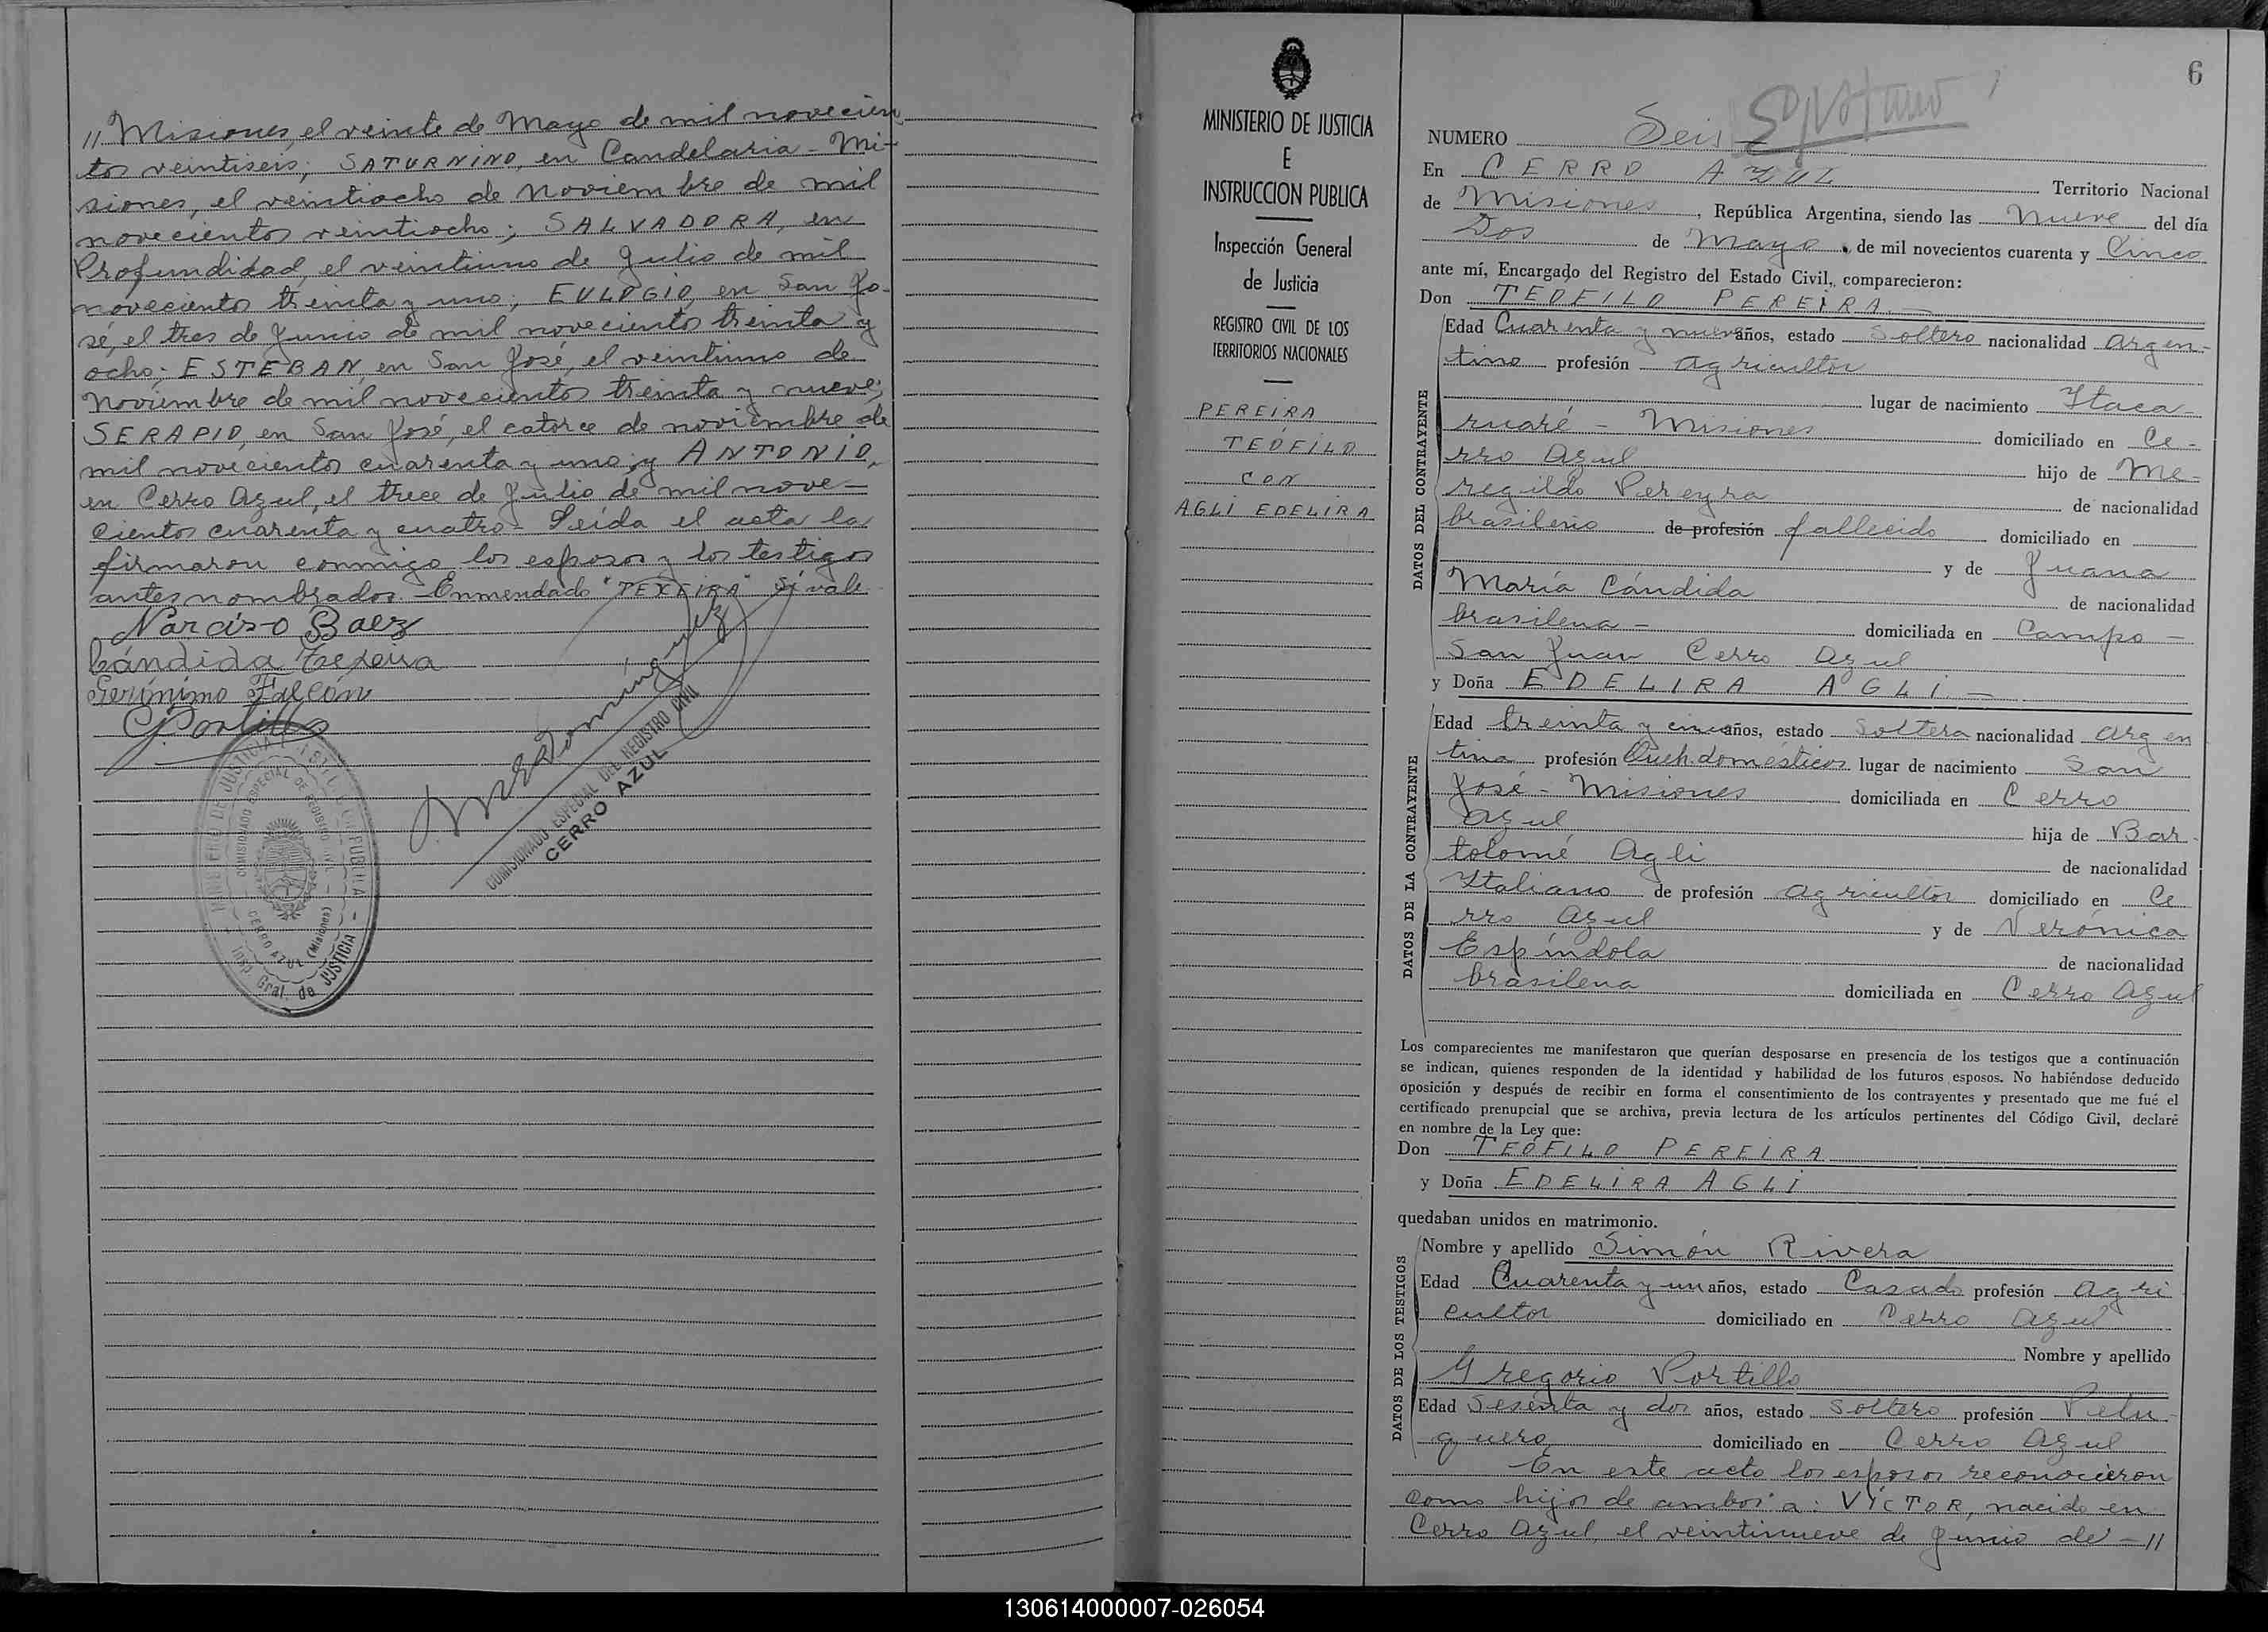 // Misiones, el veinte de Mayo de mil novecien
tos veintiseis; SATURNINO, en Candelaria - Mi-
siones, el veintiocho de Noviembre de mil
novecientos veintiocho; SALVADORA, en
Profundidad, el veintiuno de Julio de mil
novecientos treinta y uno; EULOGIO, en San Jo-
sé, el tres de Junio de mil novecientos treinta y
ocho; ESTEBAN en San José, el veintiuno de
Noviembre de mil novecientos treinta y nueve;
SERAPIO, en San José, el catorce de noviembre de
mil novecientos cuarenta y uno; y ANTONIO,
en Cerro Azul, el trece de Julio de mil nove-
cientos cuarenta y cuatro - Leida el acta la
firmaron conmigo los esposos y los testigos
antes nombrados. - Enmendado "TEXEIRA" Sí vale.
Narciso Baez
Cándida Texeira
Gerónimo Falcón
GPortillo
COMISIONADO ESPECIAL DEL REGISTRO CIVIL
CERRO AZUL
COMISIONADO ESPECIAL DE REGISTRO CIVIL
CERRO AZUL (Misiones)
Insp. Gral. de JUSTICIA
MINISTERIO DE JUSTICIA
E
INSTRUCCION PUBLICA
Inspección General
de Justicia
REGISTRO CIVIL DE LOS
TERRITORIOS NACIONALES
PEREIRA
TEÓFILO
CON
AGLI EDELIRA
6
NUMERO Seis
En CERRO AZUL Territorio Nacional
de Misiones, República Argentina, siendo las nueve del día
Dos de Mayo, de mil novecientos cuarenta y Cinco
ante mí, Encargado del Registro del Estado Civil, comparecieron:
Don TEOFILO PEREIRA
DATOS DEL CONTRAYENTE
Edad Cuarenta y nueve años, estado Soltero nacionalidad Argen-
tino profesión agricultor
lugar de nacimiento Itaca-
ruaré - Misiones domiciliado en Ce-
rro Azul hijo de Me-
regildo Pereyra de nacionalidad
brasilero de profesión fallecido domiciliado en
y de Juana
María Cándida de nacionalidad
brasilena - domiciliada en Campo -
San Juan Cerro Azul
y Doña EDELIRA AGLI -
DATOS DE LA CONTRAYENTE
Edad treinta y cinco años, estado Soltera nacionalidad Argen
tina profesión Queh. domésticos lugar de nacimiento San
José - Misiones domiciliada en Cerro
Azul hija de Bar-
tolomé Agli de nacionalidad
Italiano de profesión agricultor domiciliado en Ce
rro Azul y de Verónica
Espíndola de nacionalidad
brasilena domiciliada en Cerro Azul
Los comparecientes me manifestaron que querían desposarse en presencia de los testigos que a continuación
se indican, quienes responden de la identidad y habilidad de los futuros esposos. No habiéndose deducido
oposición y después de recibir en forma el consentimiento de los contrayentes y presentado que me fué el
certificado prenupcial que se archiva, previa lectura de los artículos pertinentes del Código Civil, declaré
en nombre de la Ley que:
Don TEÓFILO PEREIRA
y Doña EDELIRA AGLI
quedaban unidos en matrimonio.
DATOS DE LOS TESTIGOS
Nombre y apellido Simón Rivera
Edad Cuarenta y un años, estado Casado profesión Agri
cultor domiciliado en Cerro Azul
Nombre y apellido
Gregorio Portillo
Edad Sesenta y dos años, estado Soltero profesión Pelu-
quero domiciliado en Cerro Azul
En este acto los esposos reconocieron
como hijos de ambos a: VÍCTOR, nacido en
Cerro Azul, el veintinueve de Junio de - //
130614000007-026054